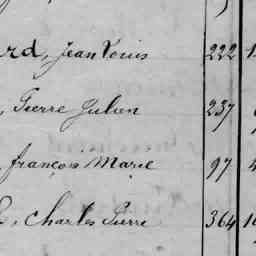 rd, Jean Louis 222 1
, Pierre Julien 237
François Marie 97 4
, Charles Pierre 364 10